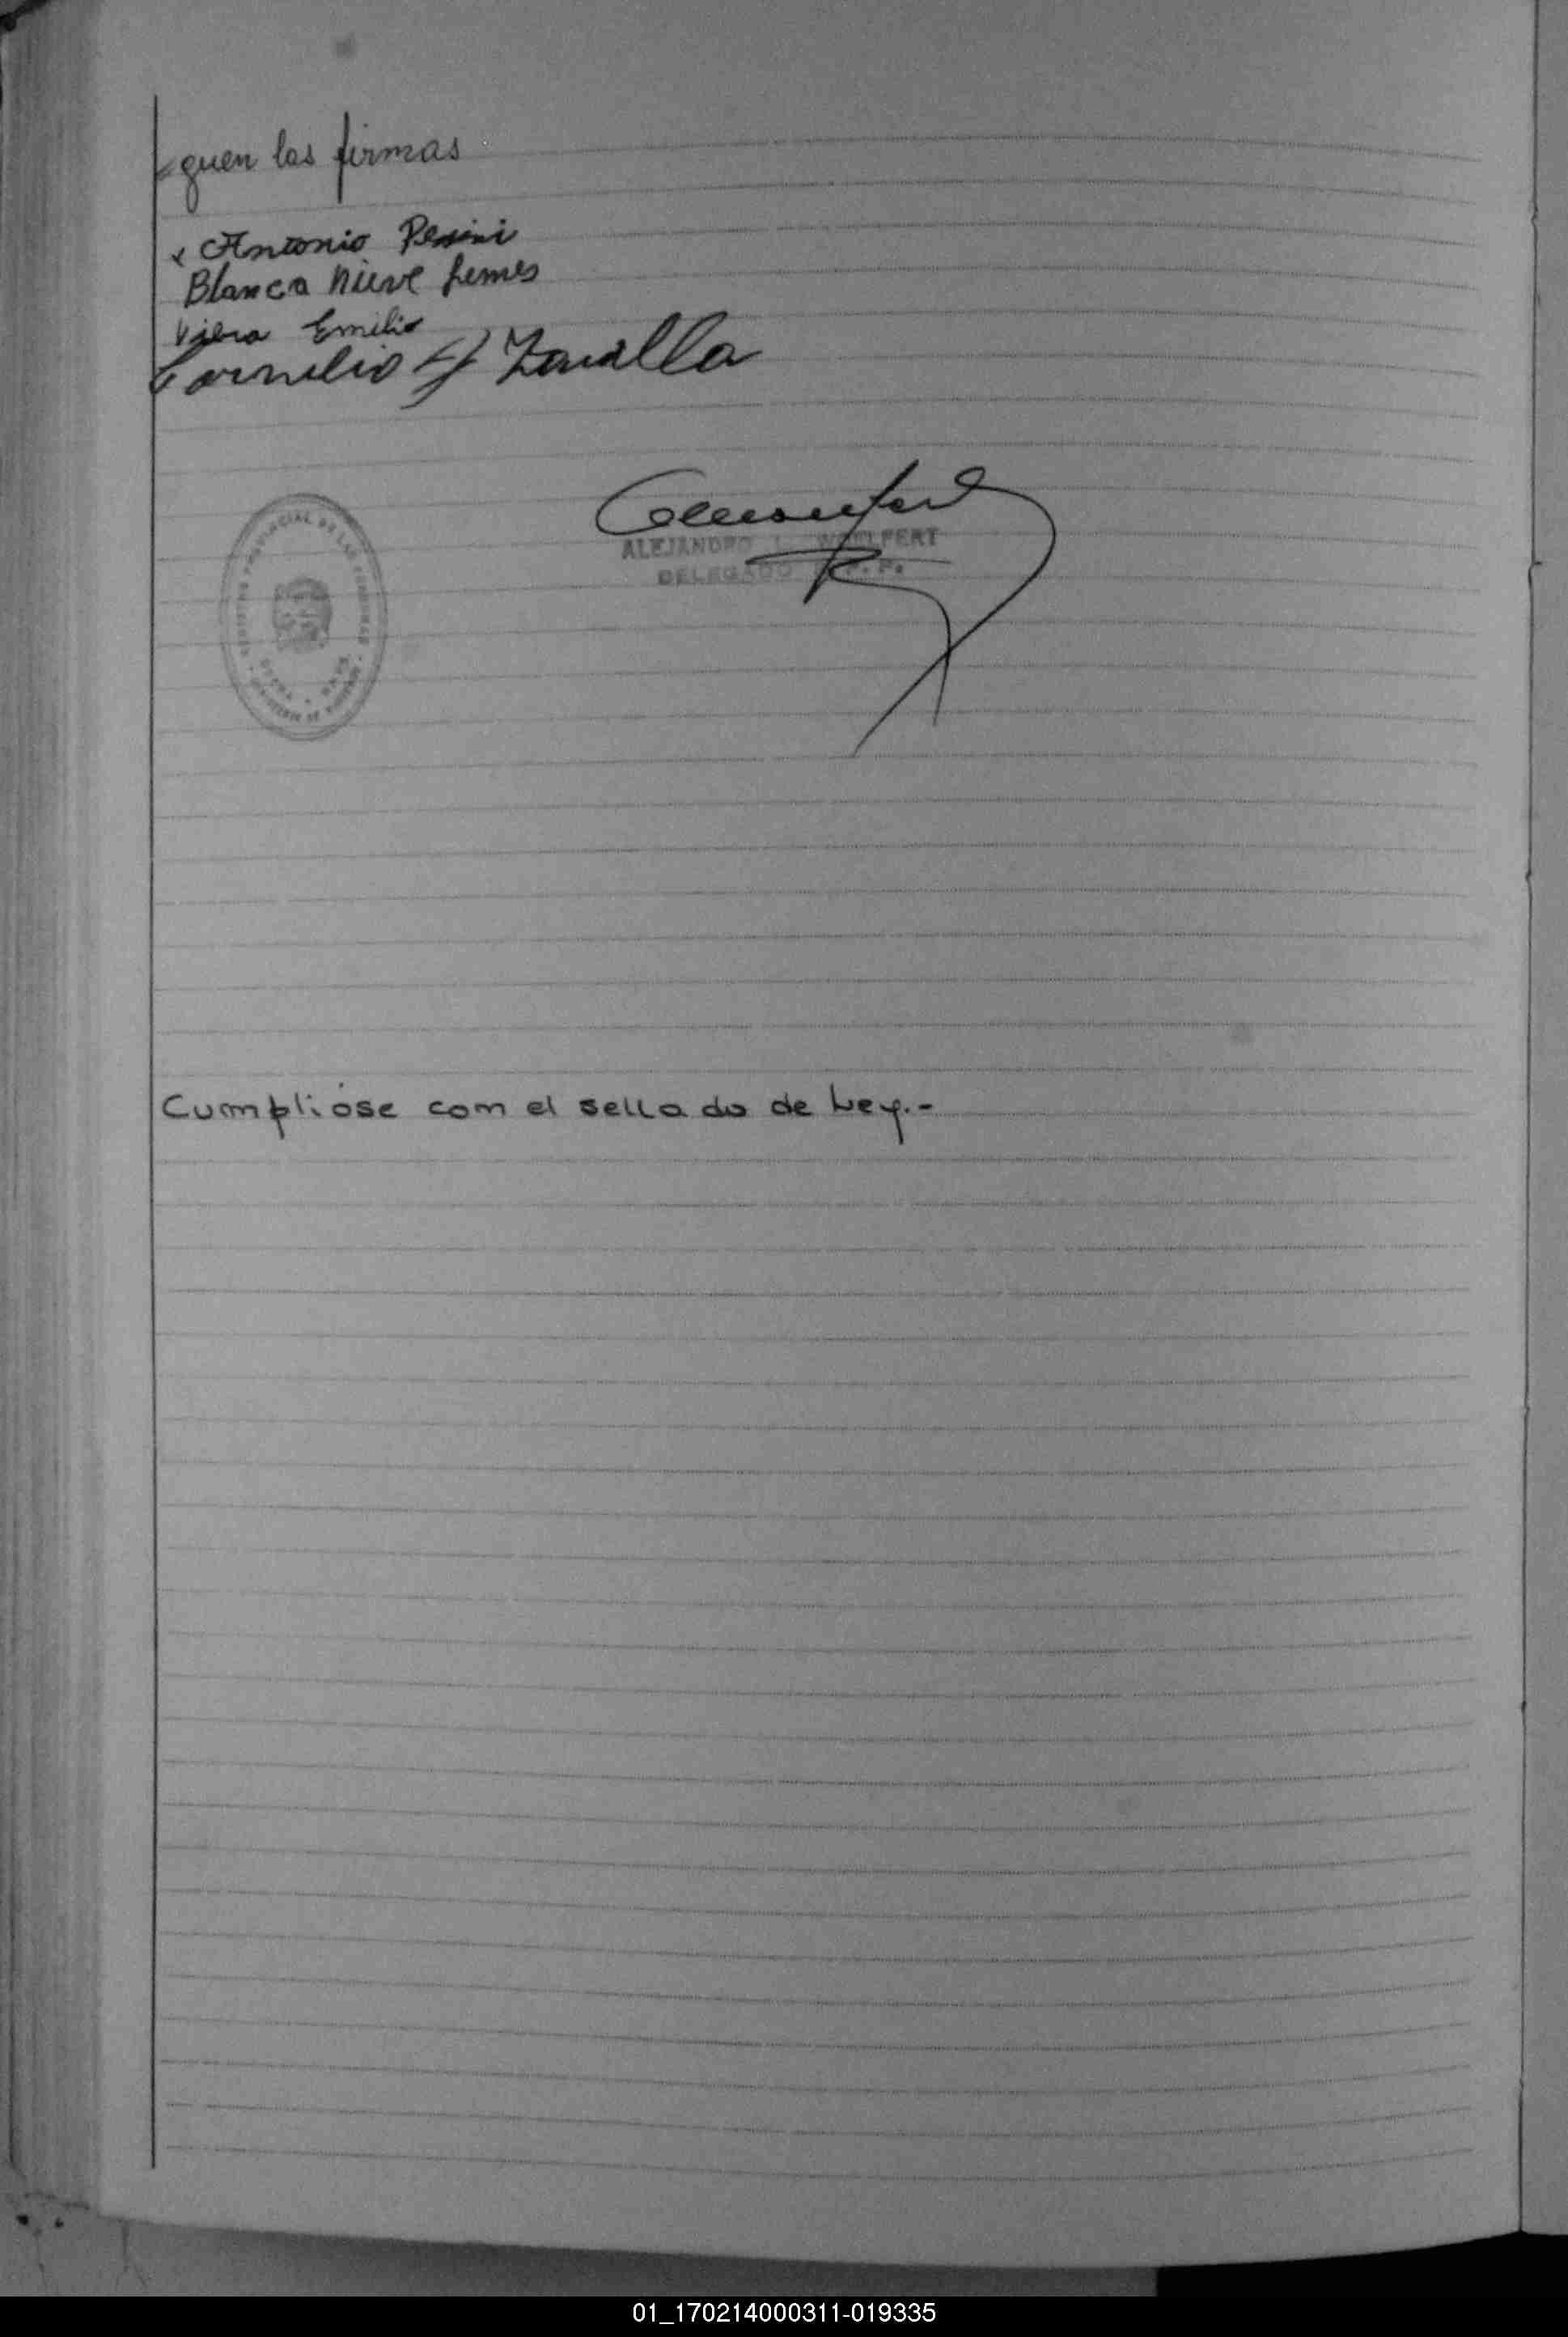 guen las firmas
x Antonio Pessini
Blanca Nieve Lemes
Viera Emilio
Cornelio J Zavalla
ALEJANDRO L. WOELFERT
DELEGADO R. P. P.
PROVINCIAL DE LAS PERSONAS
Cumplióse com el sellado de Ley.-
01_170214000311-019335